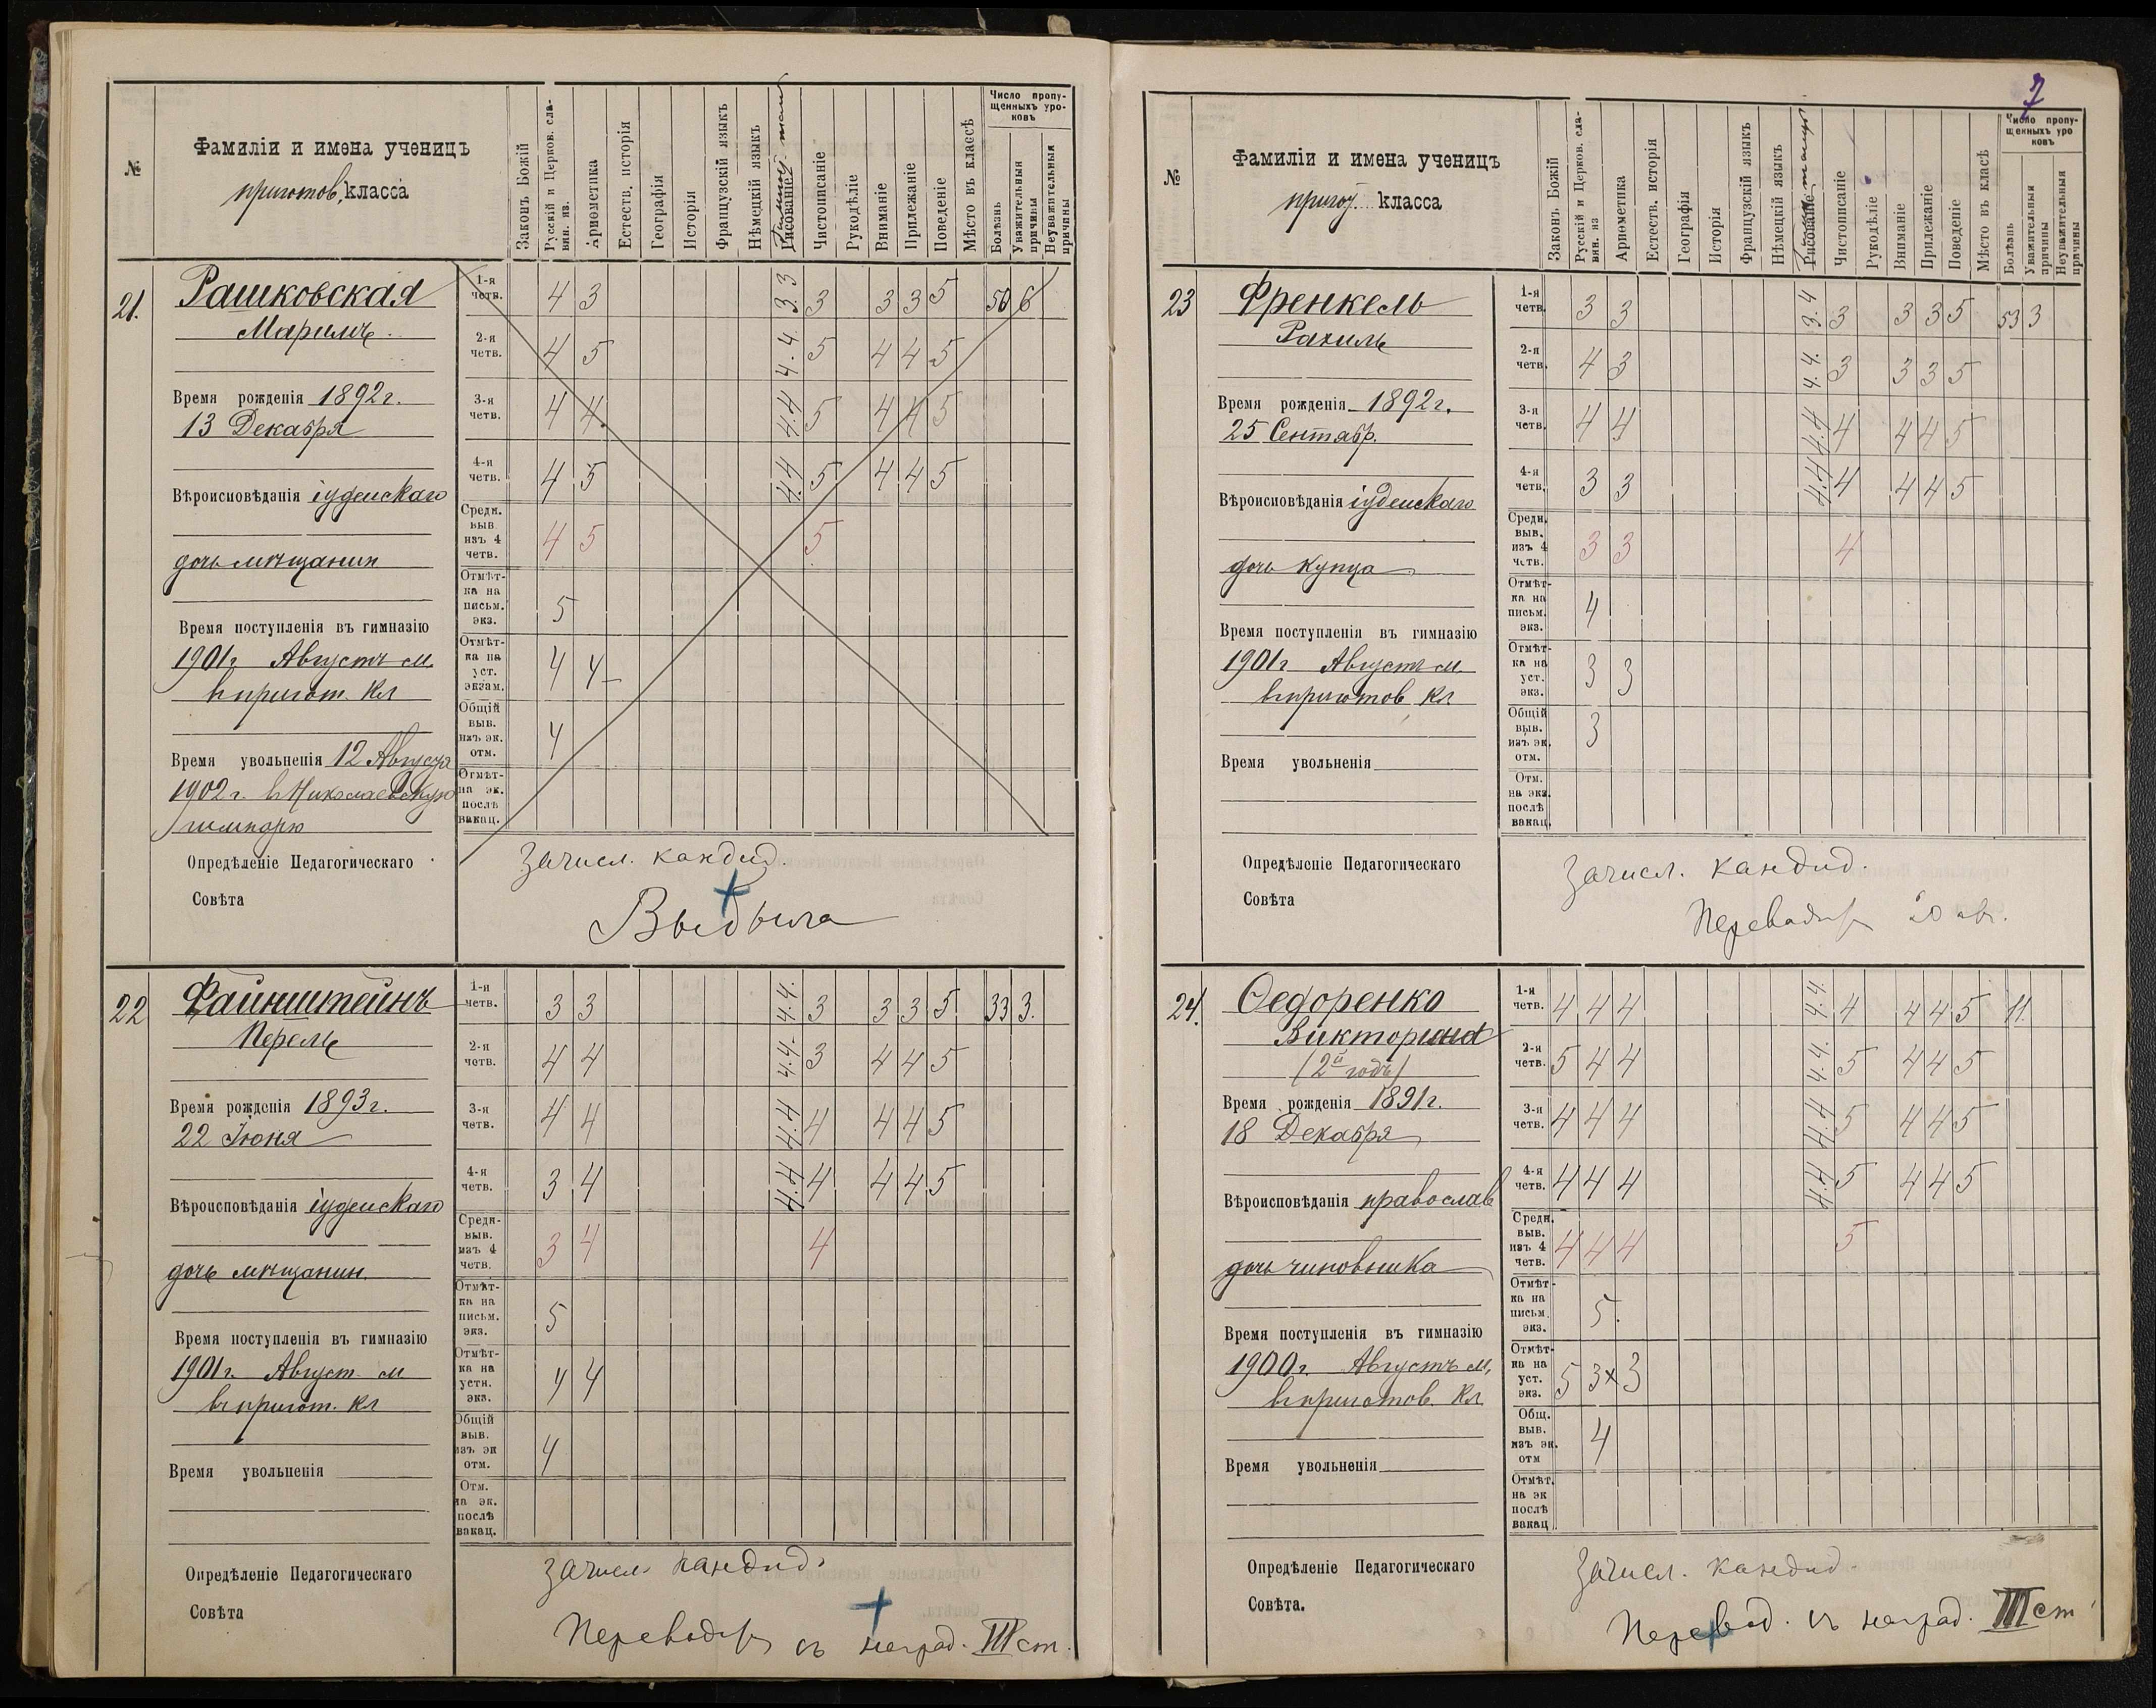 №
Фамиліи и имена ученицъ
приготов. класса
Законъ Божій
Русскій и Церков. сла-
вян. яз.
Ариѳметика
Естеств. исторія
Географія
Исторія
Французскій языкъ
Нѣмецкій языкъ
Рисованіе
Чистописаніе
Рукодѣліе
Вниманіе
Прилежаніе
Поведеніе
Мѣсто въ классѣ
Число пропу-
щенныхъ уро-
ковъ
Болѣзнь
Уважительныя
причины
Неуважительныя
причины
21.
Рашковская
Маримъ
Время рожденія 1892 г.
13 Декабря
Вѣроисповѣданія іудейскаго
дочь мѣщанин
Время поступленія въ гимназію
1901 г. Августъ м.
въ пригот. кл
Время увольненія 12 Августа
1902 г. в Николаевскую
гимназію
1-я четв. 4 3 3.3 3 3 3 5 50 6
2-я четв. 4 5 4.4. 5 4 4 5
3-я четв. 4 4. 4.4 5 4 4 5
4-я четв. 4 5 4.4 5 4 4 5
Средн. выв. изъ 4 четв. 4 5 5
Отмѣт-ка на письм. экз. 5
Отмѣт-ка на уст. экзам. 4 4-
Общій выв. изъ эк. отм. 4
Отмѣт-на эк. послѣ вакац.
Опредѣленіе Педагогическаго
Совѣта
Зачисл. кандид.
Выбыла
22
Файнштейнъ
Перель
Время рожденія 1893 г.
22 Іюня
Вѣроисповѣданія іудейскаго
дочь мѣщанин.
Время поступленія въ гимназію
1901 г. Август. м
въ пригот. кл
Время увольненія
1-я четв. 3 3 4.4. 3 3 3 5 33 3.
2-я четв. 4 4 4.4. 3 4 4 5
3-я четв. 4 4 4.4 4 4 4 5
4-я четв. 3 4 4.4 4 4 4 5
Средн-выв. изъ 4 четв. 3 4 4
Отмѣт-ка на письм. экз. 5
Отмѣт-ка на устн. экз. 4 4
Общій выв. изъ эк отм. 4
Отм. на эк. послѣ вакац.
Опредѣленіе Педагогическаго
Совѣта
Зачисл. кандид.
Переводит съ наград. III ст.
7
№
Фамиліи и имена ученицъ
пригот. класса
Законъ Божій
Русскій и Церков. сла-
вян. яз
Ариѳметика
Естеств. исторія
Географія
Исторія
Французскій языкъ
Нѣмецкій языкъ
Рисованіе
Чистописаніе
Рукодѣліе
Вниманіе
Прилежаніе
Поведеніе
Мѣсто въ классѣ
Число пропу-
щенныхъ уро
ковъ
Болѣзнь
Уважительныя
причины
Неуважительныя
причины
23
Френкель
Рахиль
Время рожденія 1892 г.
25 Сентябр.
Вѣроисповѣданія іудейскаго
дочь купца
Время поступленія въ гимназію
1901 г Августъ м.
въ приготов. кл
Время увольненія
1-я четв. 3 3 3.4 3 3 3 5 53 3
2-я четв. 4 3 4.4. 3 3 3 5
3-я четв. 4 4 4.4 4 4 4 5
4-я четв. 3 3 4.4 4 4 4 5
Средн. выв. изъ 4 четв. 3 3 4
Отмѣт-ка на письм. экз. 4
Отмѣт-ка на уст. экз. 3 3
Общій выв. изъ эк. отм. 3
Отм. на экз. послѣ вакац.
Опредѣленіе Педагогическаго
Совѣта
Зачисл. кандид.
Переводит 20 ав.
24.
Ѳедоренко
Викторина
(2й годъ)
Время рожденія 1891 г.
18 Декабря
Вѣроисповѣданія православ
дочь чиновника
Время поступленія въ гимназію
1900 г. Августъ м,
въ приготов. кл.
Время увольненія
1-я четв. 4 4 4 4.4. 4 4 4 5 11.
2-я четв. 5 4 4 4.4. 5 4 4 5
3-я четв. 4 4 4 4.4 5 4 4 5
4-я четв. 4 4 4 4.4 5 4 4 5
Средн. выв. изъ 4 четв. 4 4 4 5
Отмѣт-ка на письм. экз. 5.
Отмѣт-ка на уст. экз. 5 3x 3
Общ. выв. изъ эк. отм 4
Отмѣт. на эк послѣ вакац
Опредѣленіе Педагогическаго
Совѣта.
Зачисл. кандид.
Перевод. съ наград. III ст